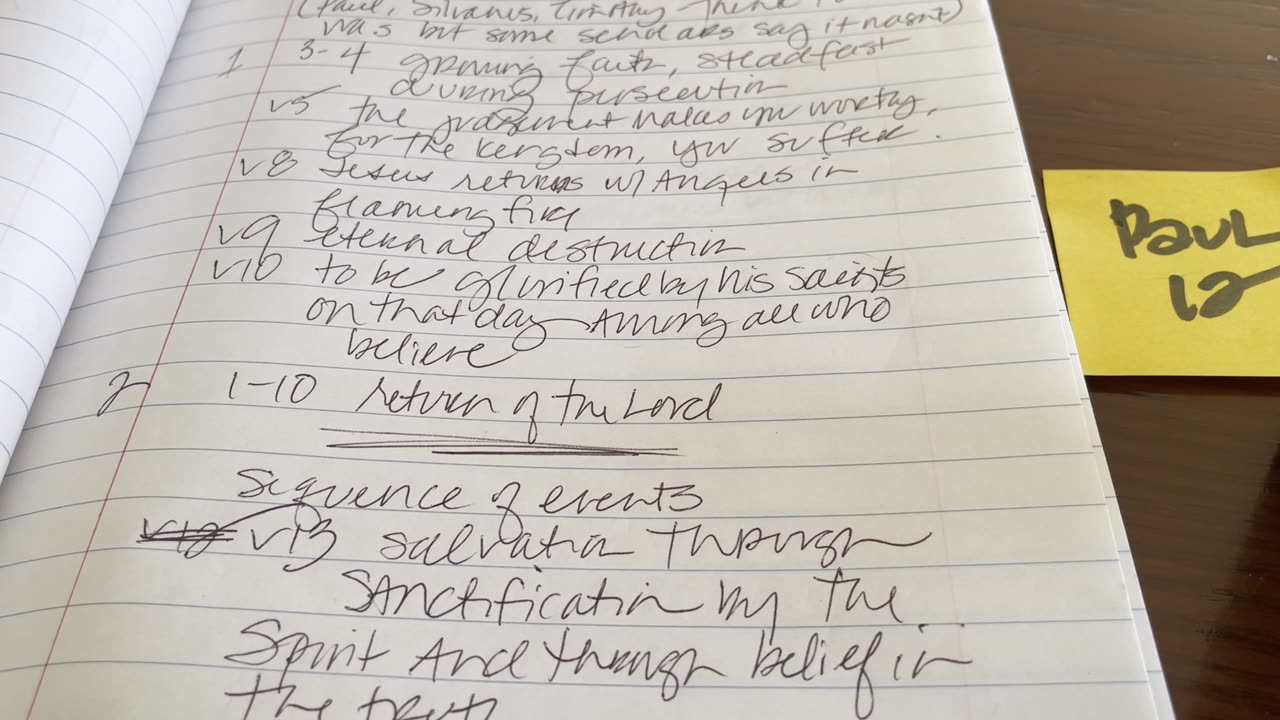 (Paul, Silvanus, Timothy - think
was but some scholars say it hasnt)
1 3-4 growing faith, steadfast
during persecution
v5 the judgement makes you worthy,
for the kingdom, you suffer.
v8 Jesus returns w/ Angels in
flaming fire
v9 eternal destruction
v10 to be glorified by his saints
on that day Among all who
believe
2 1-10 return of the Lord
Sequence of events
v12 v13 salvation through
Sanctification by the
Spirit And through belief in
the truth
PauL
12